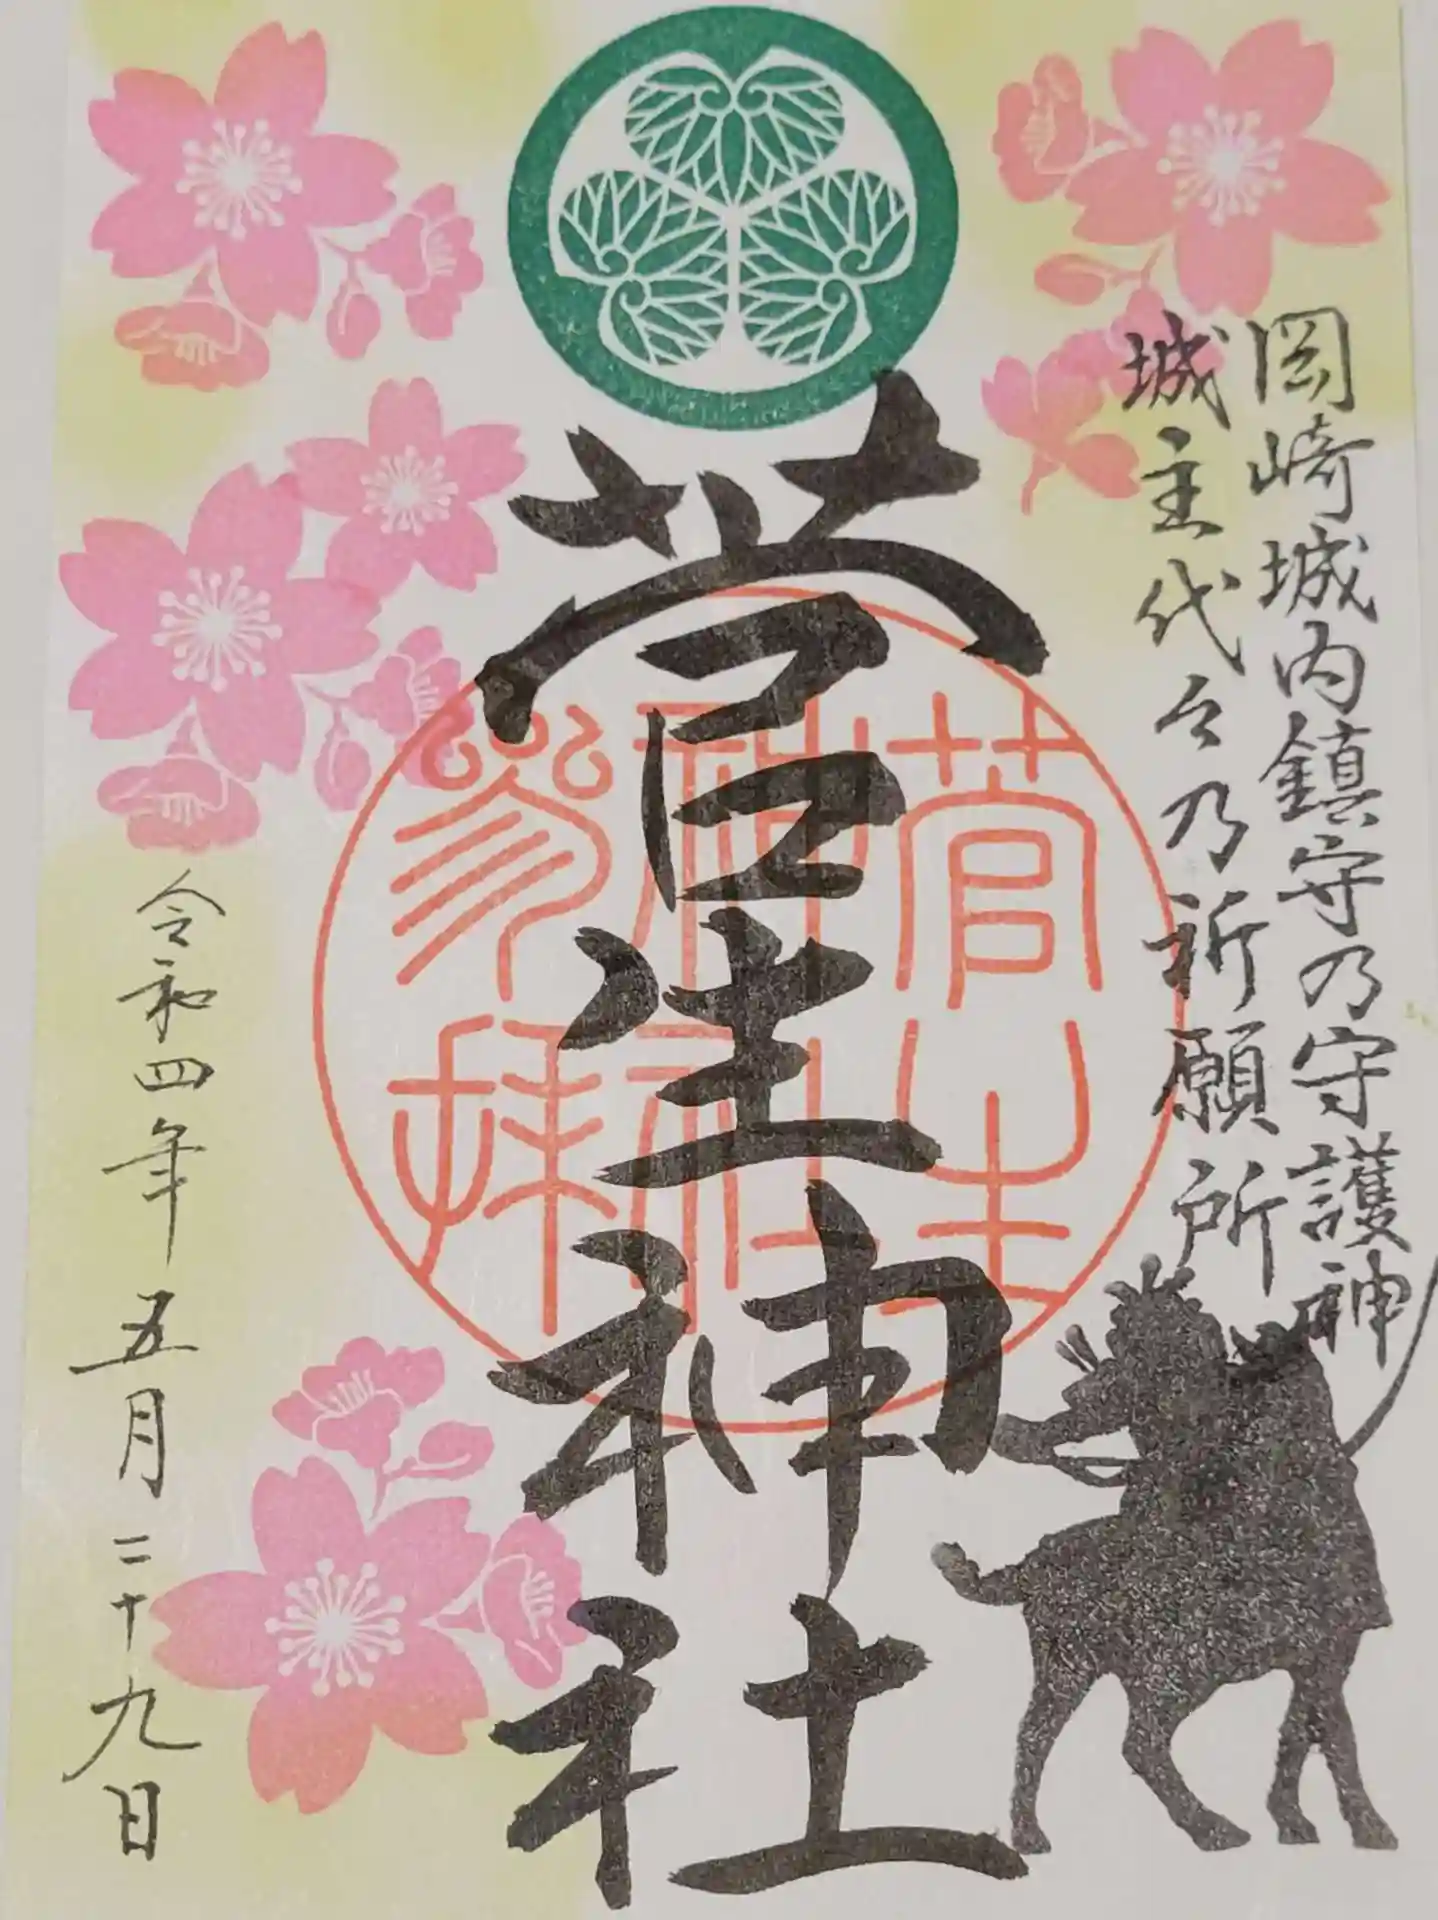 岡崎城内鎮守乃守護神
城主代々乃祈願所
菅生神社
菅生神社参拝
令和四年五月二十九日